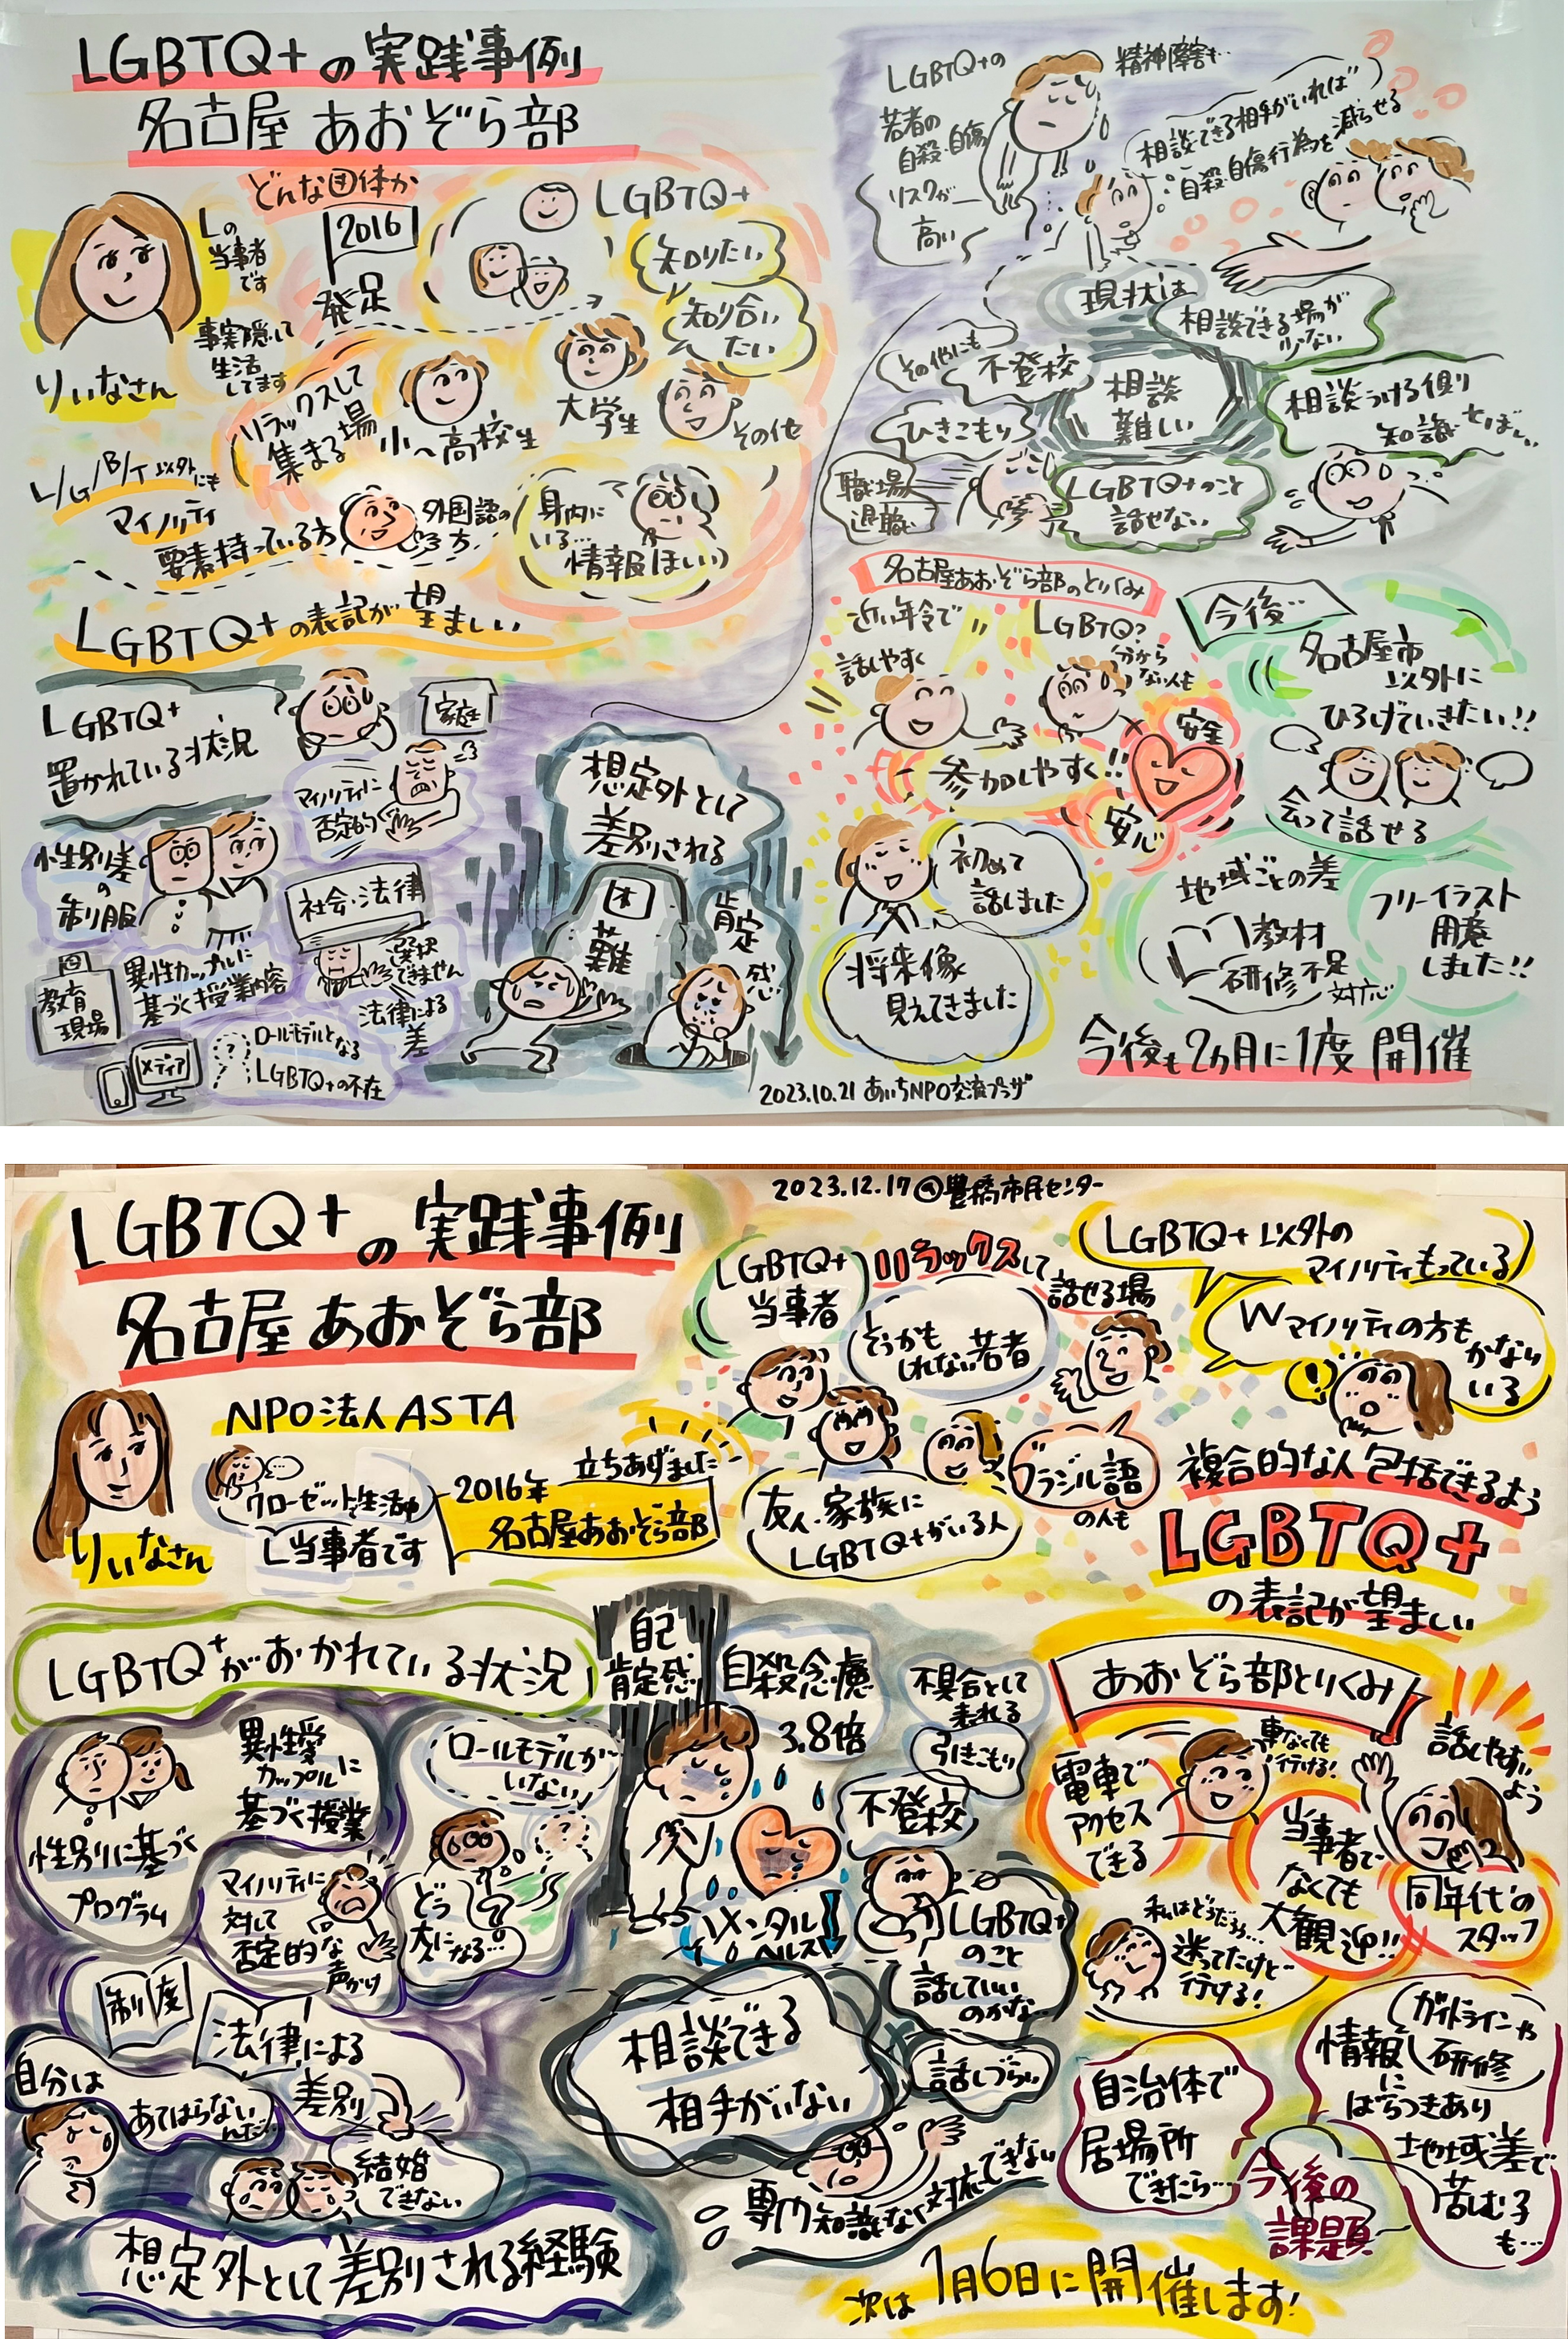 LGBTQ+の実践事例
名古屋あおぞら部
どんな団体か
りいなさん
Lの
当事者
です
事実隠して
生活
してます
2016
発足
LGBTQ+
知りたい
知り合い
たい
リラックスして
集まる場
小〜高校生
大学生
その他
L/G/B/T以外にも
マイノリティ
要素持っている方
外国語の
方
身内に
いる…
情報ほしい
LGBTQ+の表記が望ましい
LGBTQ+
置かれている状況
家庭
マイノリティに
否定的
性別差
の
制服
社会・法律
選択
できません
法律による
差
教育
現場
異性カップルに
基づく授業内容
メディア
ロールモデルとなる
LGBTQ+の不在
想定外として
差別される
困
難
肯定
感
LGBTQ+の
若者の
自殺・自傷
リスクが
高い
精神障害も…
相談できる相手がいれば
自殺自傷行為を減らせる
現状は
相談できる場が
少ない
その他にも
不登校
ひきこもり
職場
退職
相談
難しい
相談うける側
知識とぼしい
LGBTQ+のこと
話せない
名古屋あおぞら部のとりくみ
近い年令で
話しやすく
LGBTQ?
分から
ない人も
参加しやすく!!
安全
安心
初めて
話しました
将来像
見えてきました
今後…
名古屋市
以外に
ひろげていきたい!!
会って話せる
地域ごとの差
教材
研修不足
対応
フリーイラスト
用意
しました!!
今後も2ヵ月に1度開催
2023.10.21 あいちNPO交流プラザ
2023.12.17@豊橋市民センター
LGBTQ+の実践事例
名古屋あおぞら部
NPO法人ASTA
りいなさん
クローゼットで生活中
L当事者です
2016年
立ちあげました
名古屋あおぞら部
LGBTQ+
当事者
リラックスして
話せる場
そうかも
しれない若者
友人・家族に
LGBTQ+がいる人
ブラジル語
の人も
LGBTQ+以外の
マイノリティもっている
Wマイノリティの方も
かなり
いる
複合的な人包括できるよう
LGBTQ+
の表記が望ましい
LGBTQ+がおかれている状況
性別に基づく
プログラム
異性愛
カップルに
基づく授業
ロールモデルが
いない
マイノリティに
対して
否定的な
声かけ
どう
大人になる…?
制度
法律による
差別
自分は
あてはらない
んだ…
結婚
できない
想定外として差別される経験
自己
肯定感
自殺念慮
3.8倍
不具合として
表れる
引きこもり
不登校
メンタル
ヘルス
LGBTQ+
のこと
話していい
のかな…
話しづらい
相談できる
相手がいない
専門知識なく対応できない
あおぞら部とりくみ
電車で
アクセス
できる
車なくても
行ける!
話しやすい
よう
当事者で
なくても
大歓迎!!
同年代の
スタッフ
私はどうだろう…
迷ってたけど
行ける!
自治体で
居場所
できたら…
今後の
課題
ガイドラインや
情報 研修
に
ばらつきあり
地域差で
苦しむ子
も…
次は1月6日に開催します!